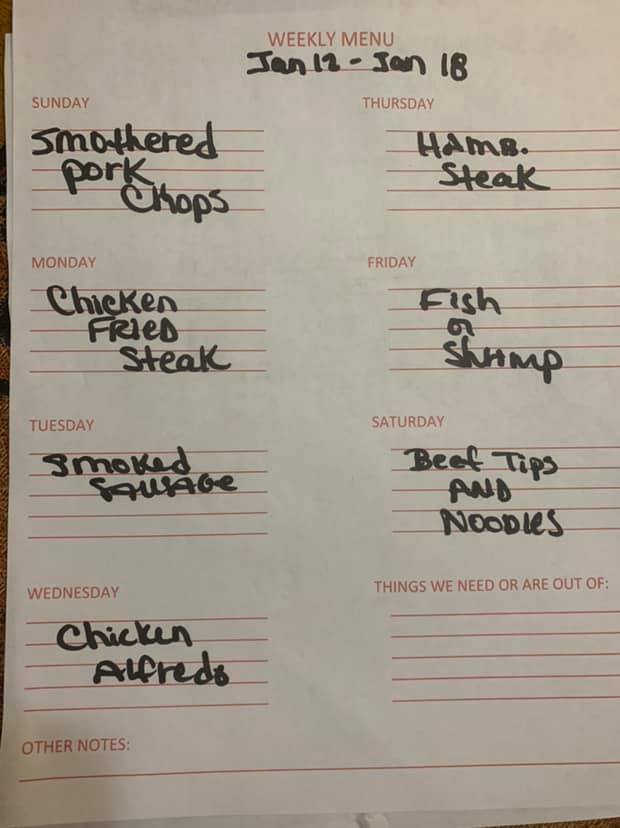 WEEKLY MENU
Jan 12 - Jan 18
SUNDAY
Smothered
Pork
Chops
MONDAY
Chicken
FRIED
Steak
TUESDAY
Smoked
SAUSAGE
WEDNESDAY
Chicken
Alfredo
THURSDAY
HAMB.
Steak
FRIDAY
Fish
or
Shrimp
SATURDAY
Beef Tips
AND
NOODLES
THINGS WE NEED OR ARE OUT OF:
OTHER NOTES: